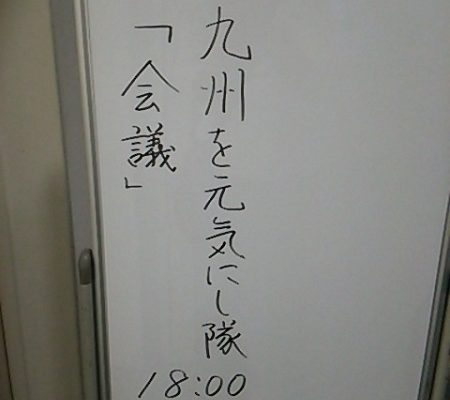 九州を元気にし隊
「会議」
18:00